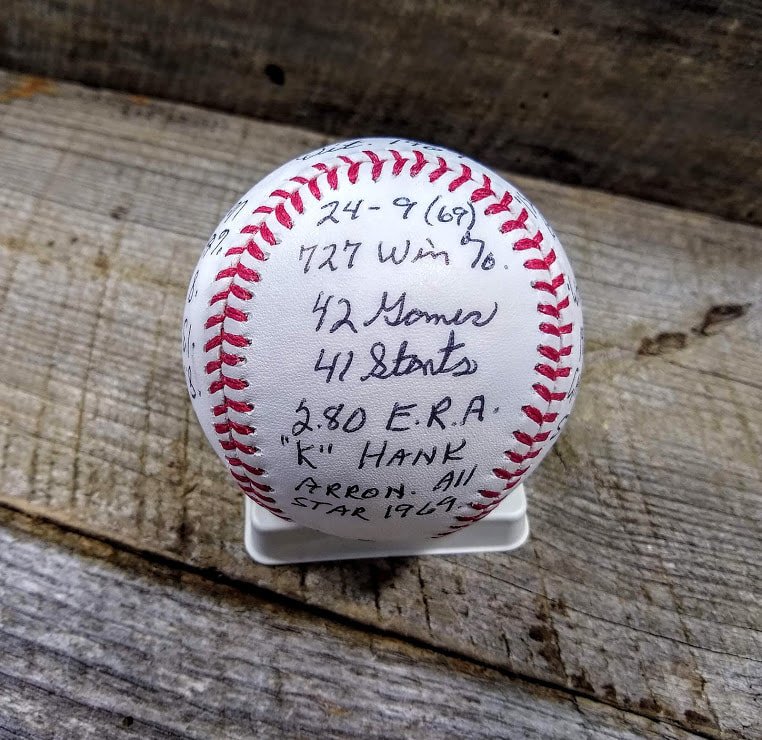 24-9 (69)
727 Win %.
42 Games
41 Starts
2.80 E.R.A.
"K" HANK
ARRON. All
STAR 1969